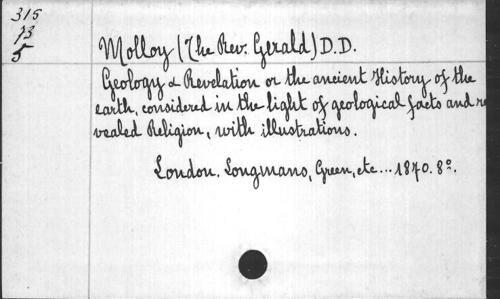 315
13
5
Molloy (The Rev. Gerald) D.D.
Geology & Revelation or the ancient History of the
earth, considered in the light of geological facts and re
vealed Religion, with illustrations.
London. Longmans, Green, etc... 1870. 8º.